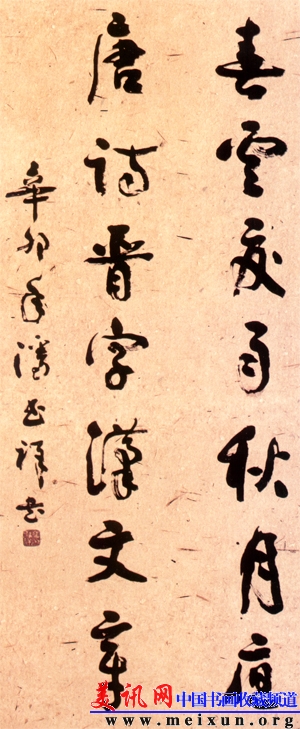 春雲夏雨秋月夜
唐詩晉字漢文章
辛卯年潘祥书
美讯网 中国书画收藏频道
www.meixun.org